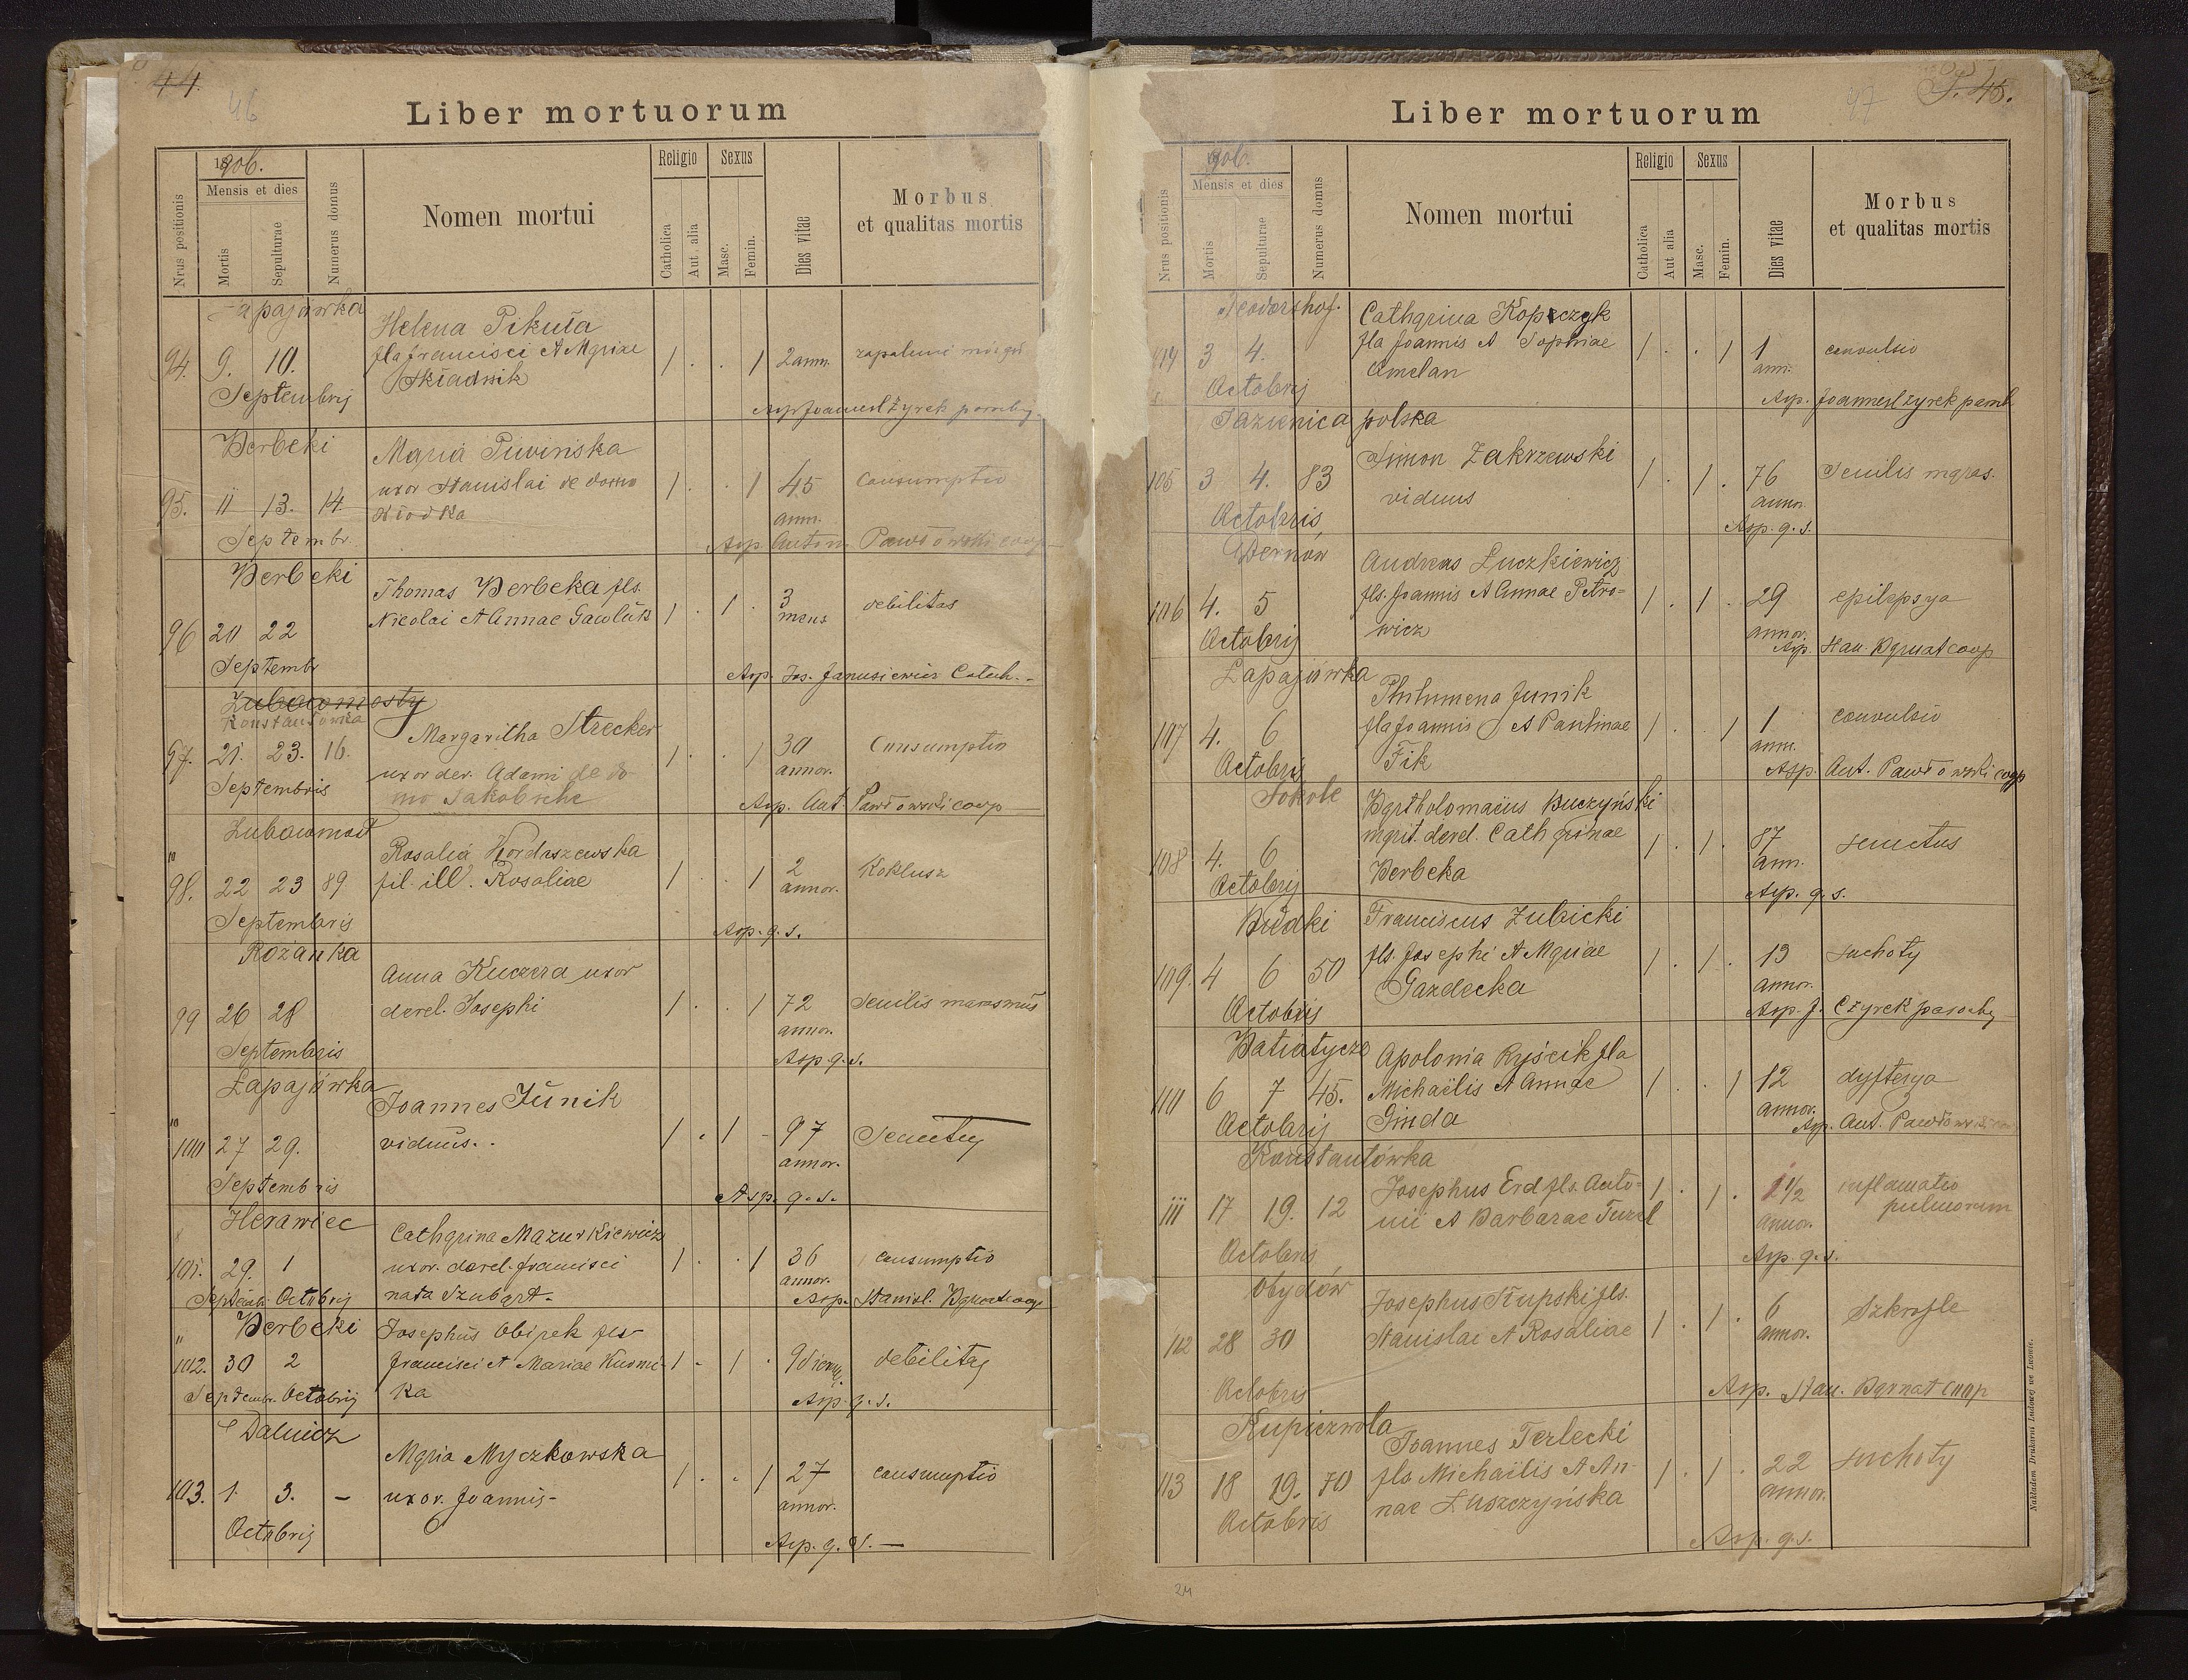 44.
46
Liber mortuorum
Nrus positionis
1906.
Mensis et dies
Mortis
Sepulturae
Numerus domus
Nomen mortui
Religio
Catholica
Aut alia
Sexus
Masc.
Femin.
Dies vitae
Morbus
et qualitas mortis
Łapajówka
Helena Pikuła
94. 9. 10. fla Francisci et Mariae 1 . . 1 2 ann. zapalenie mózgu
Septembrij Składnik
Asp. Joannes Czyrek paroch.
Derbeki
Maria Piwińska
95. 11 13. 14. uxor Stanislai de domo 1 . . 1 45 consumptio
Kłodka ann.
Septembr. Asp. Anton. Pawłowski coop
Derbeki
Thomas Derbeka fls.
96 20 22 Nicolai et Annae Gawluk 1 . 1 . 3 mens debilitas
Septembr
Asp. Jos. Janusiewicz Catech.
Żubowmosty
Konstantówka
Margaritha Strecker
97. 21. 23. 16. uxor der. Adami de do- 1 . . 1 30 consumptio
Septembris mo Jakobsche annor.
Asp. Ant. Pawłowski coop
Żubowmost
Rosalia Kordaszewska
98. 22 23 89 fil. ill. Rosaliae 1 . . 1 2 annor. Koklusz
Septembris
Asp. q. s.
Rożanka
Anna Kuczera uxor
99 26 28 derel. Josephi 1 . . 1 72 senilis marasmus
annor.
Septembris Asp. q. s.
Łapajówka
Joannes Junik
100 27 29. viduus. 1 . 1 - 97 Senectus
annor.
Septembris Asp. q. s.
Herawiec
Catharina Mazurkiewicz
101. 29. 1 uxor. derel. Francisci 1 . . 1 36 consumptio
annor.
Septemb. Octobrij nata Szubart. Asp. Stanisl. Bernat coop
Derbeki
Josephus Obirek fls
102. 30 2 Francisci et Mariae Kusmi- 1 - 1 . 9 dierum debilitas
Septembr. Octobrij ka Asp. q. s.
Dalnicz
Maria Myczkowska
103. 1. 3. - uxor. Joannis- 1 . . 1 27 consumptio
annor.
Octobrij
Asp. q. s. —
P. 45.
47
Liber mortuorum
Nrus positionis
1906.
Mensis et dies
Mortis
Sepulturae
Numerus domus
Nomen mortui
Religio
Catholica
Aut alia
Sexus
Masc.
Femin.
Dies vitae
Morbus
et qualitas mortis
Teodorshof.
Catharina Kopczyk
104 3 4. fla Joannis et Sophiae 1 . . 1 1 ann. convulsio
Octobrij Amelan
Asp. Joannes Czyrek paroch
Jazienica polska
Simon Zakrzewski
105 3 4. 83 viduus 1 . 1 . 76 senilis maras.
annor.
Octobris Asp. q. s.
Dernów
Andreas Łuczkiewicz
106 4. 5 fls. Joannis et Annae Petro- 1 . 1 . 29 epilepsya
wicz annor.
Octobrij Asp. Stan. Bernat coop
Łapajówka
Philumena Junik
107 4. 6 fla Joannis et Paulinae 1 . . 1 1 convulsio
ann.
Octobris Fik Asp. Ant. Pawłowski coop
Sokole
Bartholomaeus Buczyński
marit. derel. Catharinae
108 4. 6 Derbeka 1 . 1 . 87 senectus
ann.
Octobrij Asp. q. s.
Budki
Franciscus Zubicki
fls. Josephi et Mariae
109. 4 6 50 Gazdecka 1 . 1 . 13 suchoty
annor.
Octobris Asp. J. Czyrek paroch
Batiatycze
Apolonia Ryścik fla
110 6 7 45. Michaëlis et Annae 1 . . 1 12 dyfterya
annor.
Octobrij Ginda Asp. Ant. Pawłowski
Konstantówka
Josephus Erd fls. Anto-
111 17 19. 12 nii et Barbarae Turzl 1 . 1 . 1 1/2 inflamatio
pulmorum
annor.
Octobris Asp. q. s.
Obydów
Josephus Słupski fls.
112 28 30 Stanislai et Rosaliae 1 . 1 . 6 Szkrofle
annor.
Octobris Asp. Stan. Bernat coop
Kupiczwola
Joannes Terlecki
113 18 19. 70 fls Michaëlis et An- 1 . 1 . 22 suchoty
annor.
nae Łuszczyńska
Octobris
Asp. q. s.
Nakładem Drukarni Ludowej we Lwowie.
24